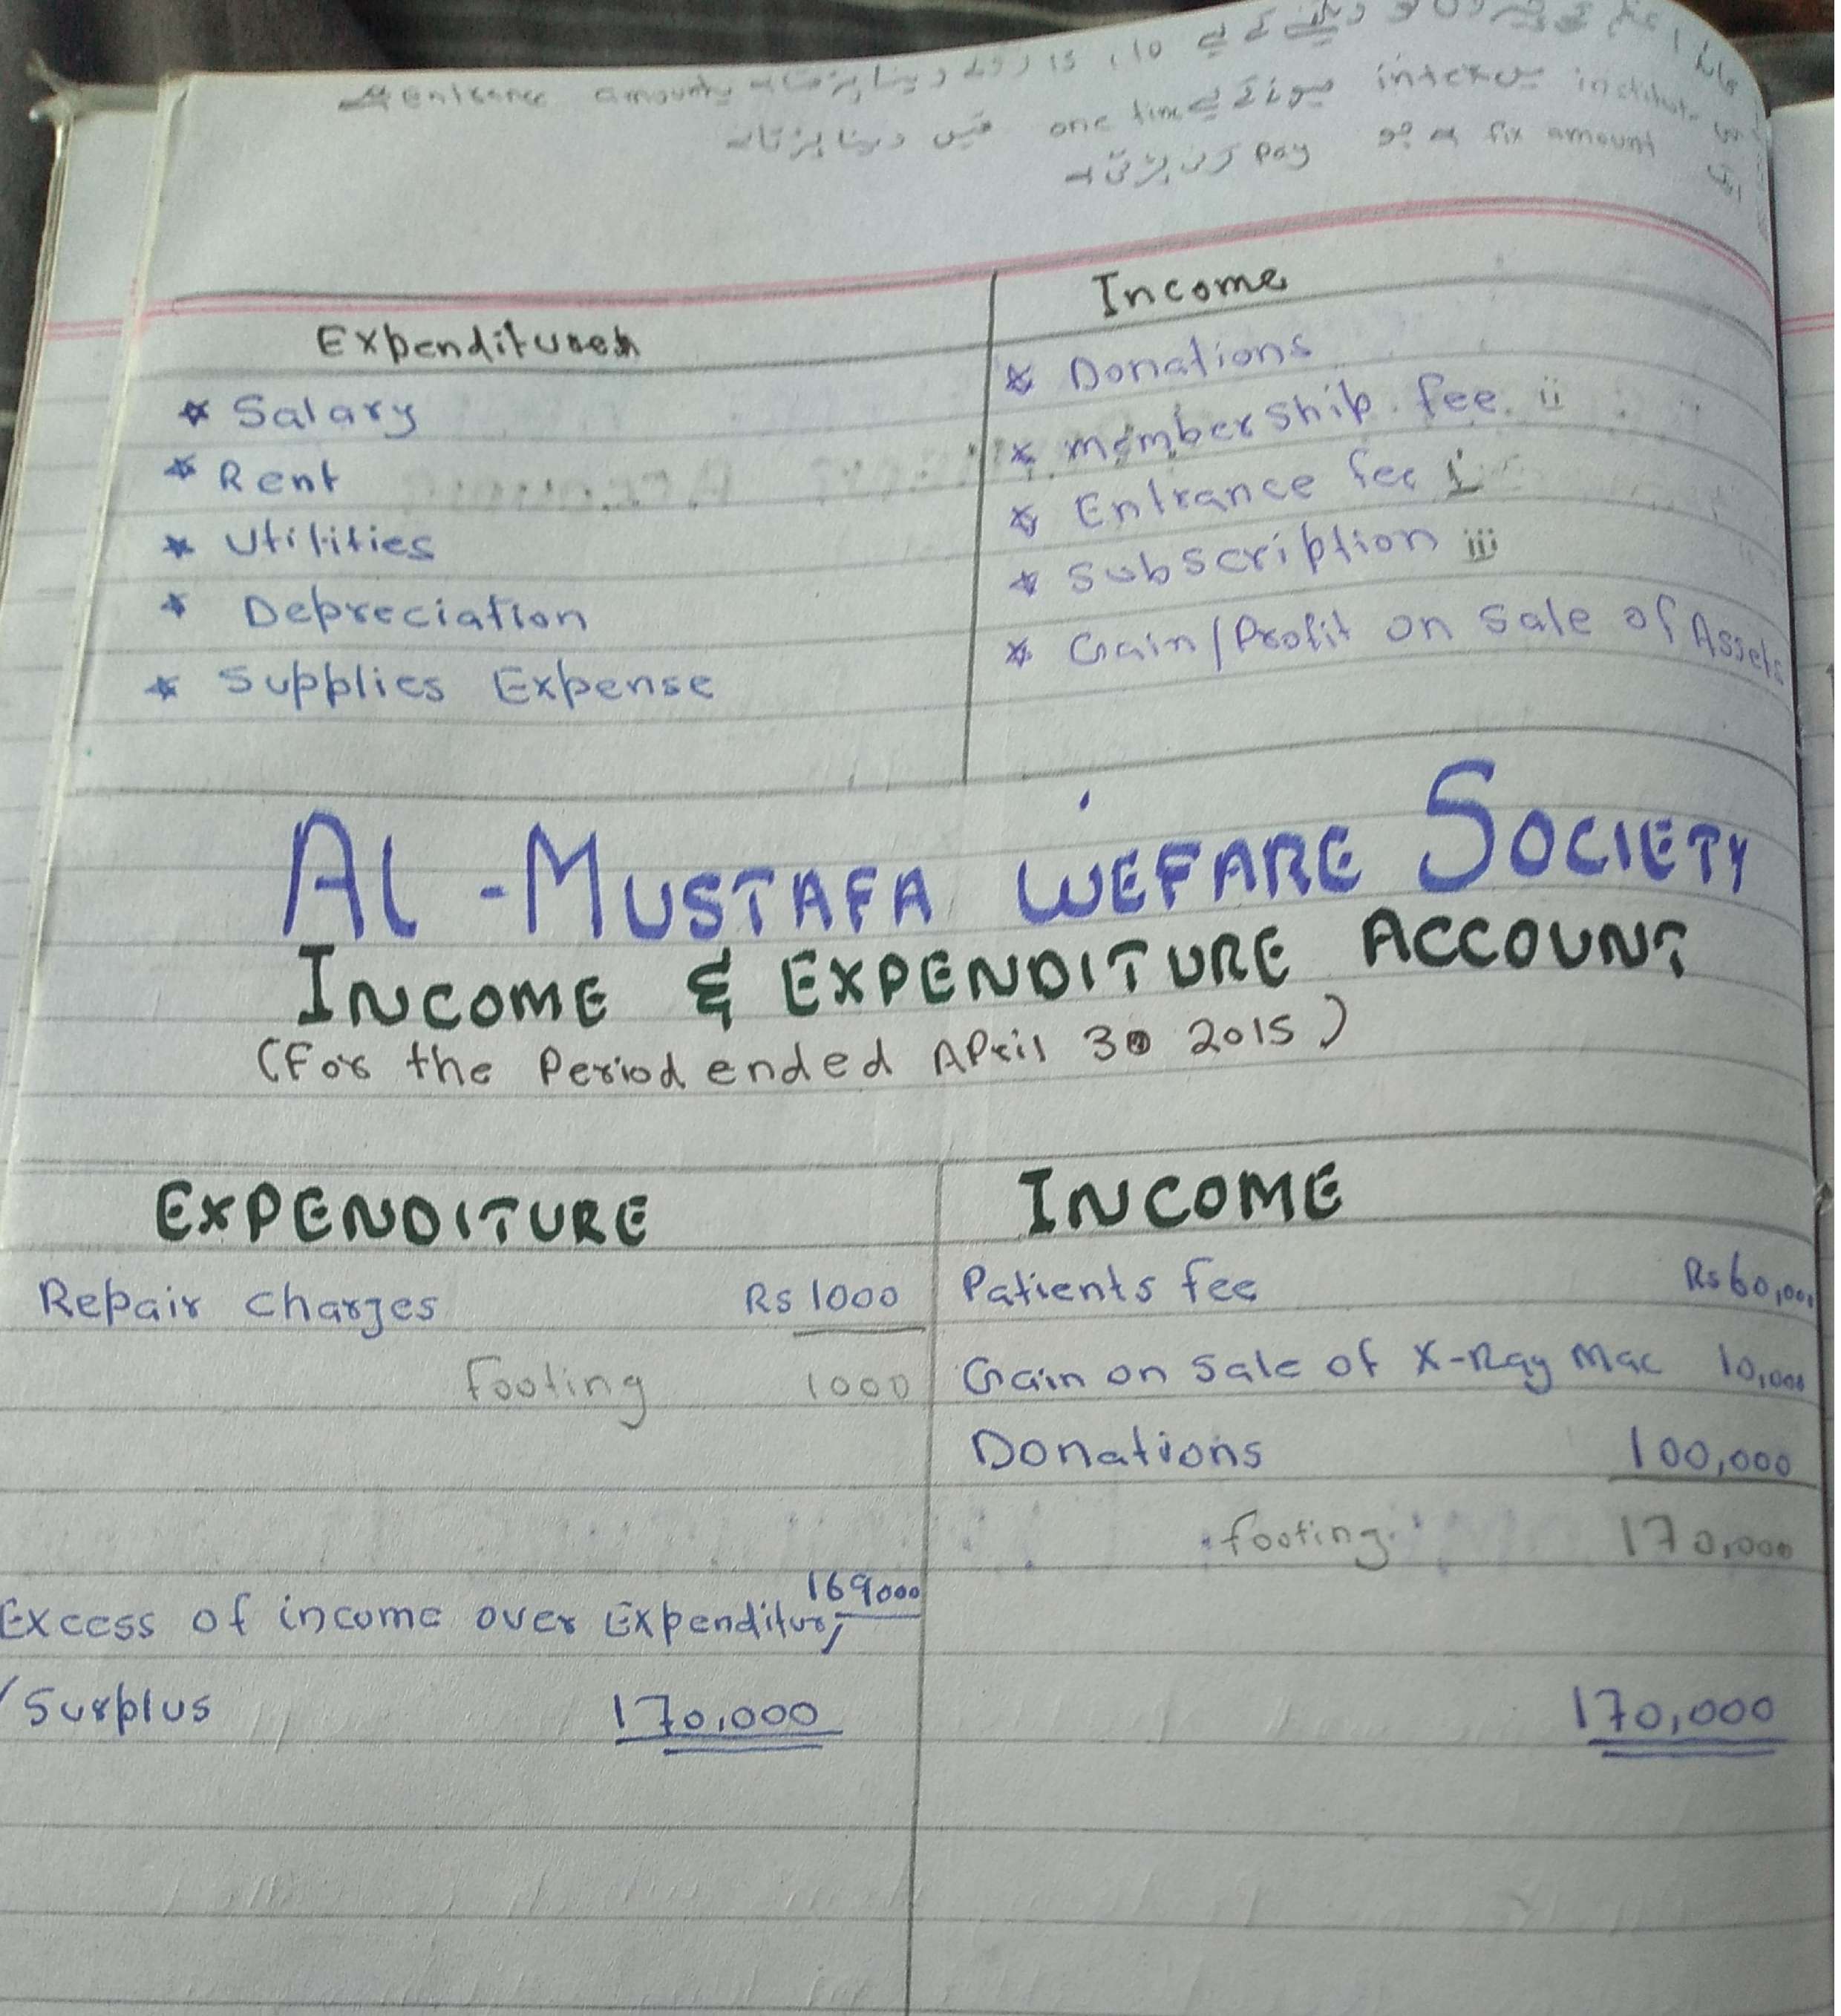 دینے کے لیے 10، 15 روپے دینا پڑتا ہے entrance amount
interview institute ہونے کے لیے one time فیس دینا پڑتا ہے
fix amount ہے جو pay کرنی پڑتی ہے
Expenditures
Income
* Salary
* Donations
* Rent
* membership fee ii
* Utilities
* Entrance fee i
* Depreciation
* Subscription iii
* Supplies Expense
* Gain/Profit on Sale of Assets
AL-MUSTAFA WEFARE SOCIETY
INCOME & EXPENDITURE ACCOUNT
(For the Period ended APril 30 2015)
EXPENDITURE INCOME
Repair charges Rs 1000 Patients fee Rs 60,000
footing 1000 Gain on sale of X-Ray Mac 10,000
Donations 100,000
footing 170,000
Excess of income over Expenditure 169000
/Surplus 170,000 170,000